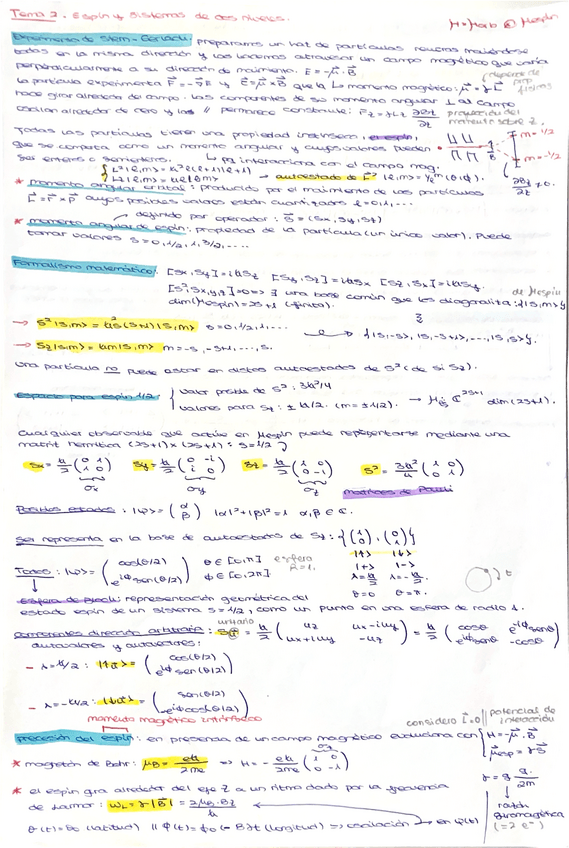 Tema 2. Espín y sistemas de dos niveles.
H = Horb ⊗ Hespín
Experimento de Stern-Gerlach: preparamos un haz de partículas neutras moviéndose
todas en la misma dirección y las hacemos atravesar un campo magnético que varía
perpendicularmente a su dirección de movimiento. E = -μ⃗·B⃗
la partícula experimenta F⃗ = -∇E y Γ⃗ = μ⃗×B⃗ que la momento magnético: μ⃗ = γL⃗
hace girar alrededor de campo. Las componentes de su momento angular ⊥ al campo
oscilan alrededor de cero y las // permanece constante: Fz = γLz ∂Bz/∂z
proyección del momento sobre z.
Todas las partículas tienen una propiedad intrínseca, el espín,
que se comporta como un momento angular y cuyos valores pueden
m = 1/2
m = -1/2
ser enteros o semienteros. pq interacciona con el campo mag.
∂Bz/∂z ≠ 0.
L²|l,m> = ħ²l(l+1)|l,m>
Lz|l,m> = ħm|l,m>
autoestado de L² |l,m> = Ylm(θ,φ).
* momento angular orbital: producido por el movimiento de las partículas
L⃗ = r⃗×p⃗ cuyos posibles valores están cuantizados l = 0,1,...
definido por operador: S⃗ = (Sx,Sy,Sz)
* momento angular de espín: propiedad de la partícula (un único valor). Puede
tomar valores s = 0, 1/2, 1, 3/2, ...
Formalismo matemático: [Sx,Sy] = iħSz [Sy,Sz] = iħSx [Sz,Sx] = iħSy.
[S²,Sx,y,z] = 0 => ∃ una base común que los diagonaliza: {|s,m>}
de Hespín
dim(Hespín) = 2s+1 (finita).
→ S²|s,m> = ħ²s(s+1)|s,m> s = 0,1/2,1...
{|s,-s>, |s,-s+1>, ..., |s,s>}.
→ Sz|s,m> = ħm|s,m> m = -s, -s+1, ..., s.
Una partícula no puede estar en distos autoestados de S² (de si Sz).
espacio para espín 1/2
valor posible de S²: 3ħ²/4
valores para Sz: ± ħ/2. (m = ±1/2). → Hs ≅ ℂ^2s+1 dim(2s+1).
Cualquier observable que actúe en Hespín puede representarse mediante una
matriz hermítica (2s+1) x (2s+1): s = 1/2
Sx = ħ/2 (0 1 / 1 0) Sy = ħ/2 (0 -i / i 0) Sz = ħ/2 (1 0 / 0 -1) S² = 3ħ²/4 (1 0 / 0 1)
σx σy σz
matrices de Pauli
Posibles estados: |ψ> = (α / β) |α|²+|β|² = 1 α,β ∈ ℂ.
Se representa en la base de autoestados de Sz: {(1 / 0), (0 / 1)}
|↑> |↓>
Todos: |ψ> = (cos(θ/2) / e^iφ sen(θ/2)) θ ∈ [0,π] φ ∈ [0,2π]
esfera R=1.
|+> |->
λ = ħ/2 λ = -ħ/2.
θ = 0 θ = π.
Esfera de Bloch: representación geométrica del
estado espín de un sistema s = 1/2, como un punto en una esfera de radio 1.
Componentes dirección arbitraria:
unitario
Su = ħ/2 (uz ux-iuy / ux+iuy -uz) = ħ/2 (cosθ e^-iφ senθ / e^iφ senθ -cosθ)
autovalores y autovectores:
- λ = ħ/2: |↑u> = (cos(θ/2) / e^iφ sen(θ/2))
- λ = -ħ/2: |↓u> = (sen(θ/2) / -e^iφ cos(θ/2))
momento magnético intrínseco
considero L⃗=0 // potencial de interacción
precesión del espín: en presencia de un campo magnético evoluciona con
H = -μ⃗·B⃗
μ⃗esp = γS⃗
* magnetón de Bohr: μB = eħ/2me => H = - eħ/2me (1 0 / 0 -1)
σz
γ = g q/2m
* el espín gira alrededor del eje z a un ritmo dado por la frecuencia
de Larmor: ωL = γ|B⃗| = 2μB·Bz/ħ
ratio giromagnética
(=2 e⁻)
θ(t) = θ0 (latitud) // φ(t) = φ0 - Bγt (longitud) => oscilación → en φ(t)